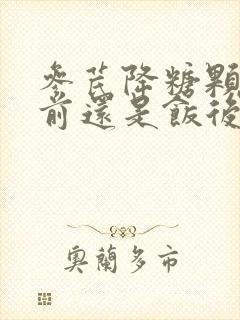 參芪降糖顆
前還是飯後
奧蘭多市